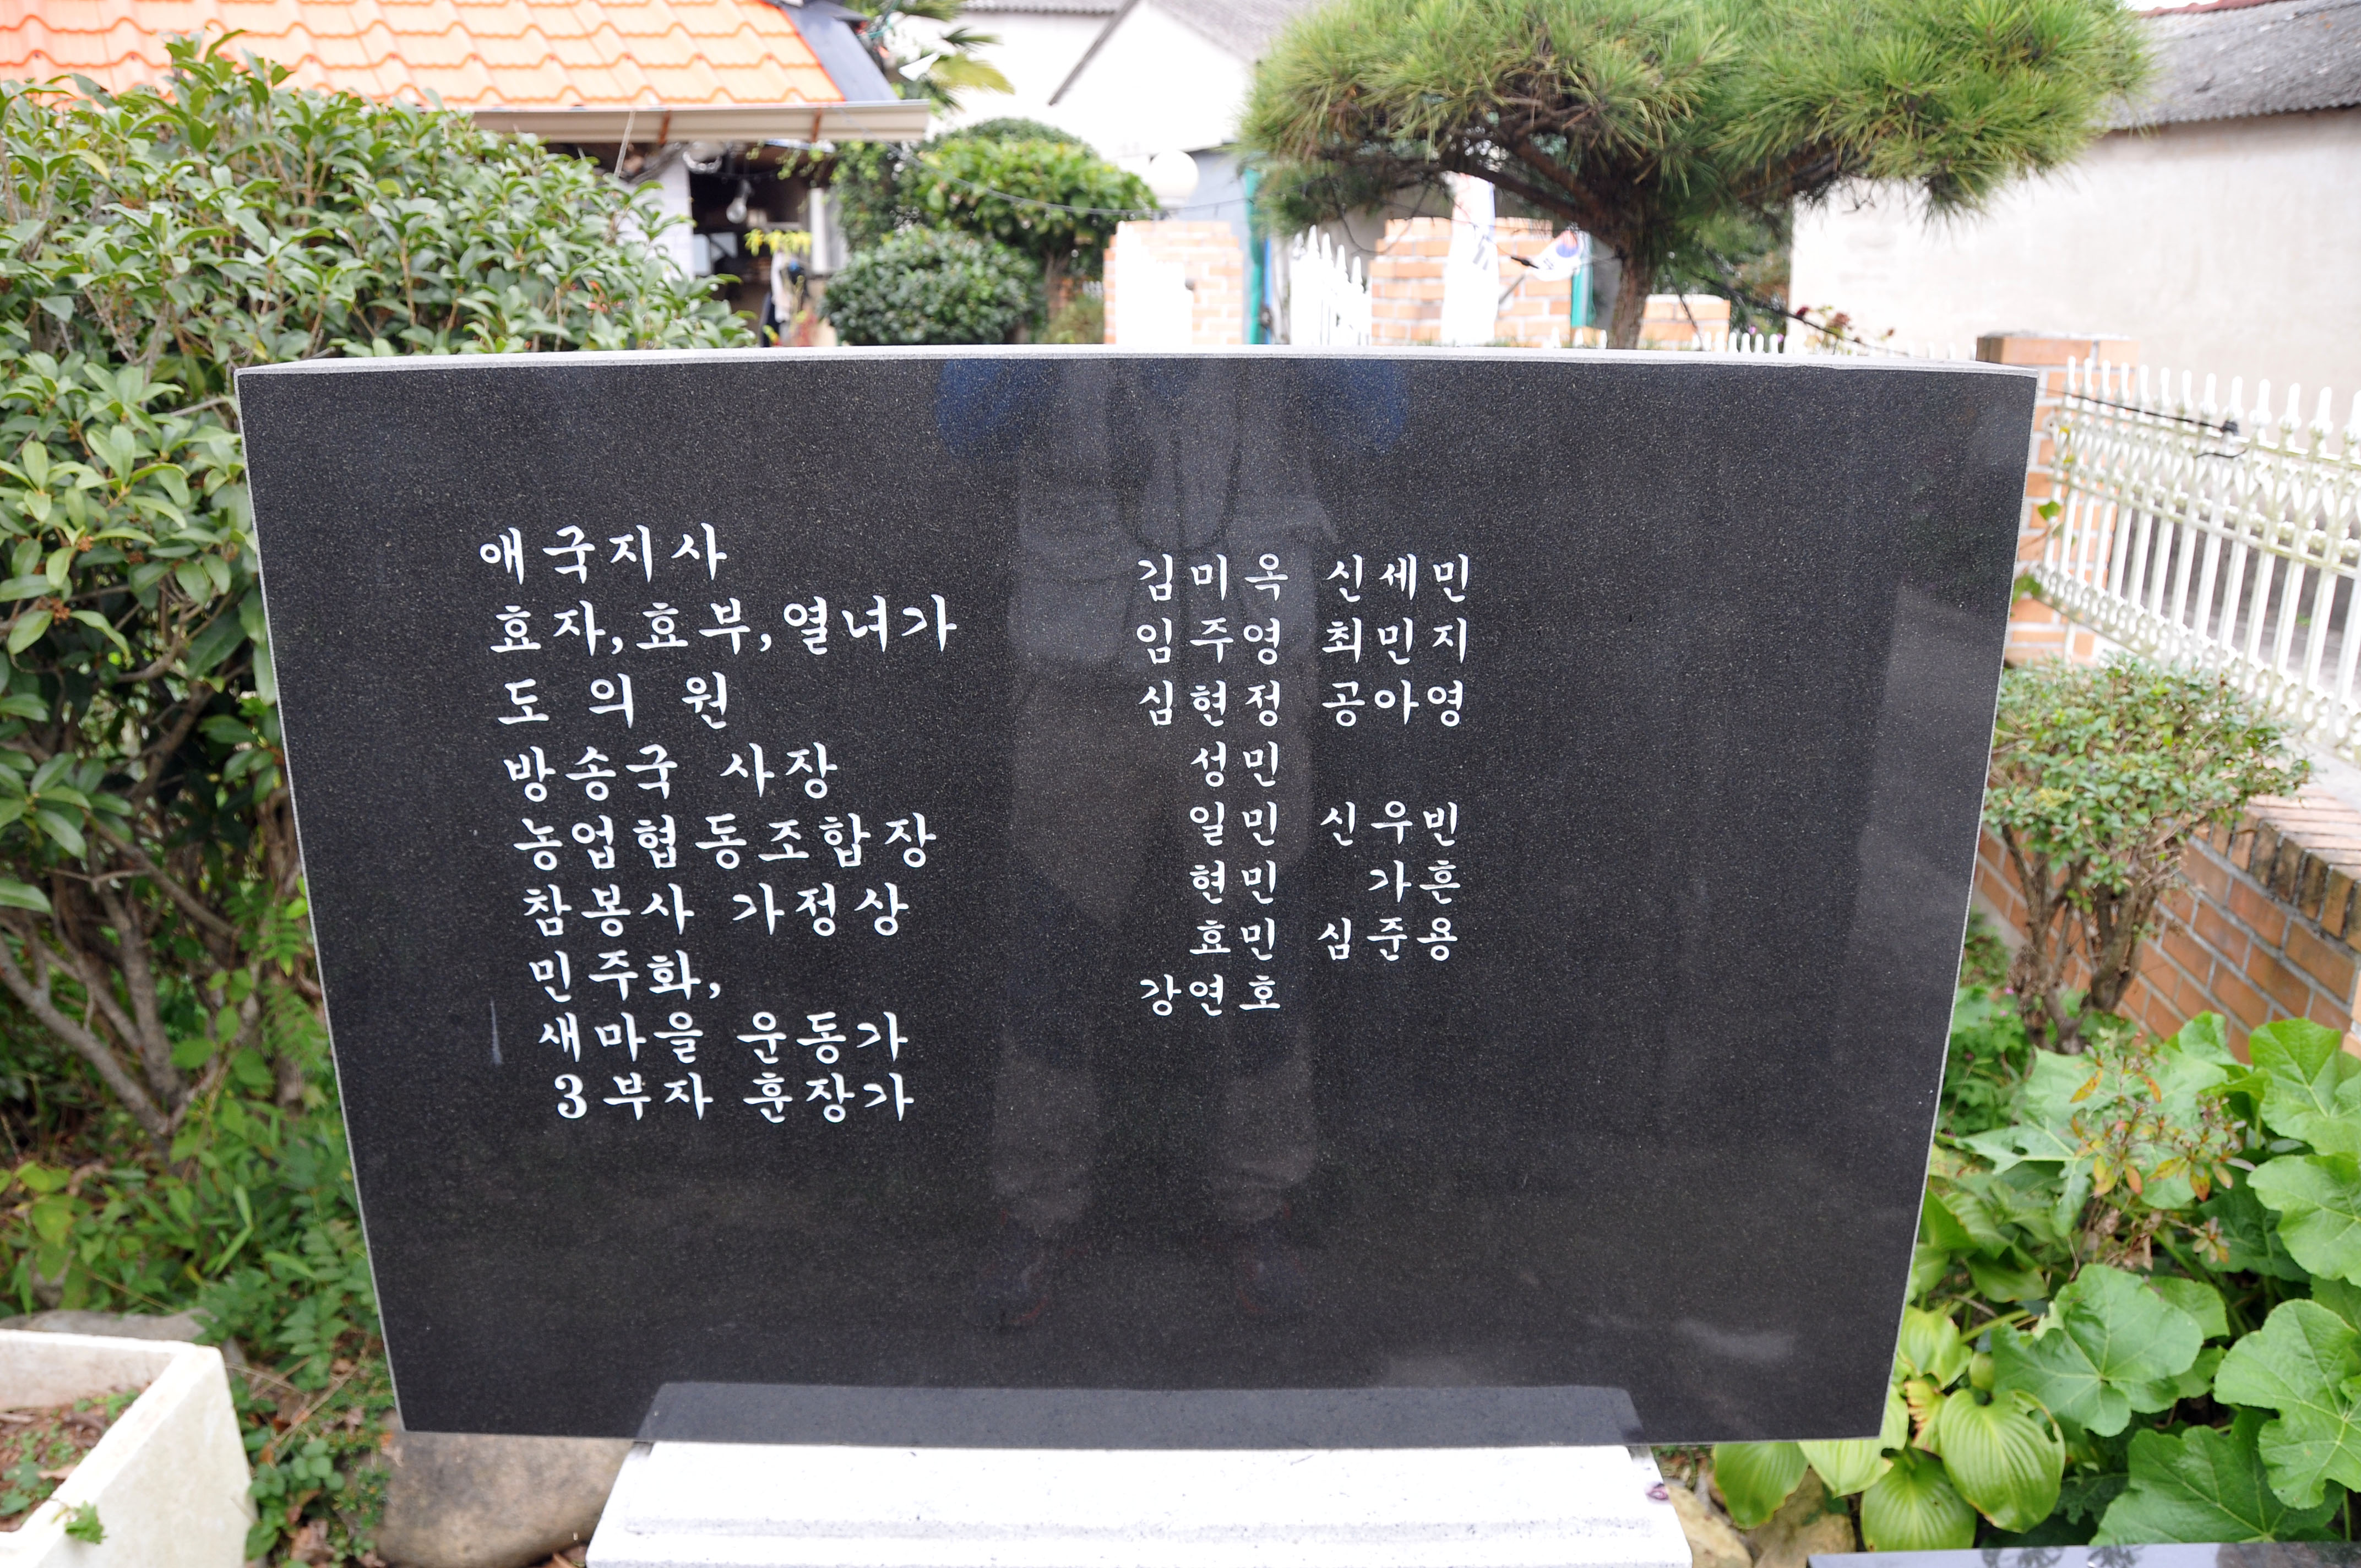 애국지사
효자,효부,열녀가
도 의 원
방송국 사장
농업협동조합장
참봉사 가정상
민주화,
새마을 운동가
3부자 훈장가
김미옥 신세민
임주영 최민지
심현정 공아영
성민
일민 신우빈
현민 가흔
효민 심준용
강연호